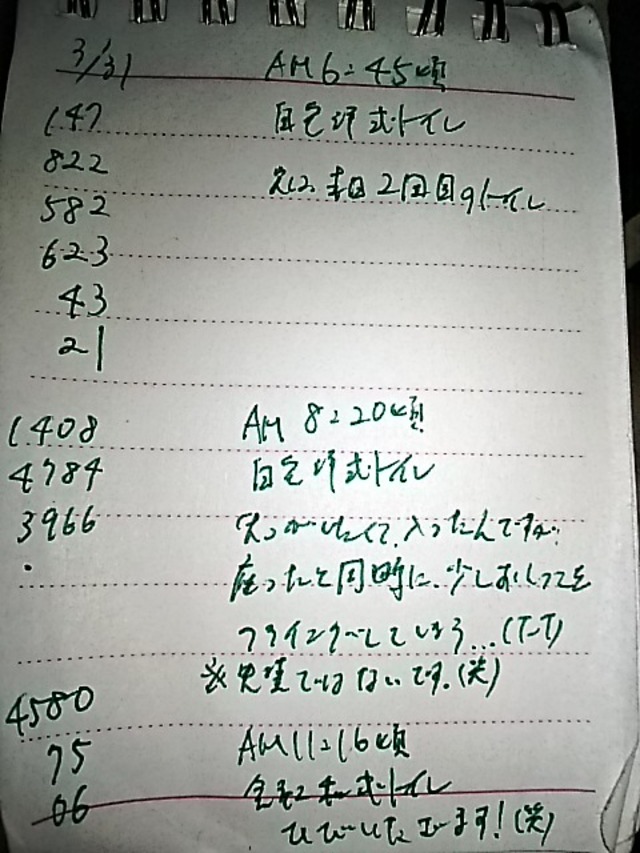 3/31 AM 6:45頃
147 自宅洋式トイレ
822
582 本日2回目のトイレ
623
43
21
1408 AM 8:20頃
4784 自宅洋式トイレ
3966 入ったんですが
・ 座ったと同時に、少しおしっこを
フライングしてしまう…(T-T)
4580 ※ ではないです。(笑)
75 AM11:16頃
06 和式トイレ
ます!(笑)